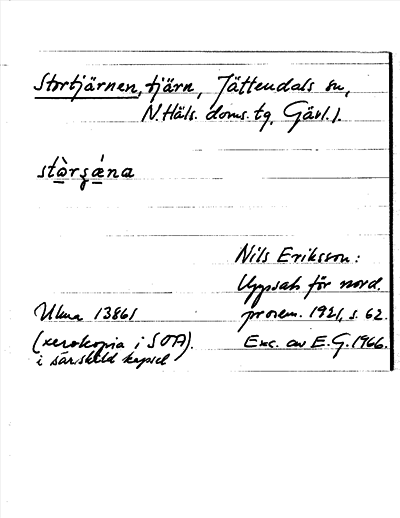 Stortjärnen, tjärn, Jättendals sn,
N. Häls. doms. tg, Gävl. l.
stòrʒǽna
Nils Eriksson:
Uppsats för nord.
prosem. 1921, s. 62.
Exc. av E. G. 1966.
Ulma 13861
(xerokopia i SOA).
i särskild kapsel